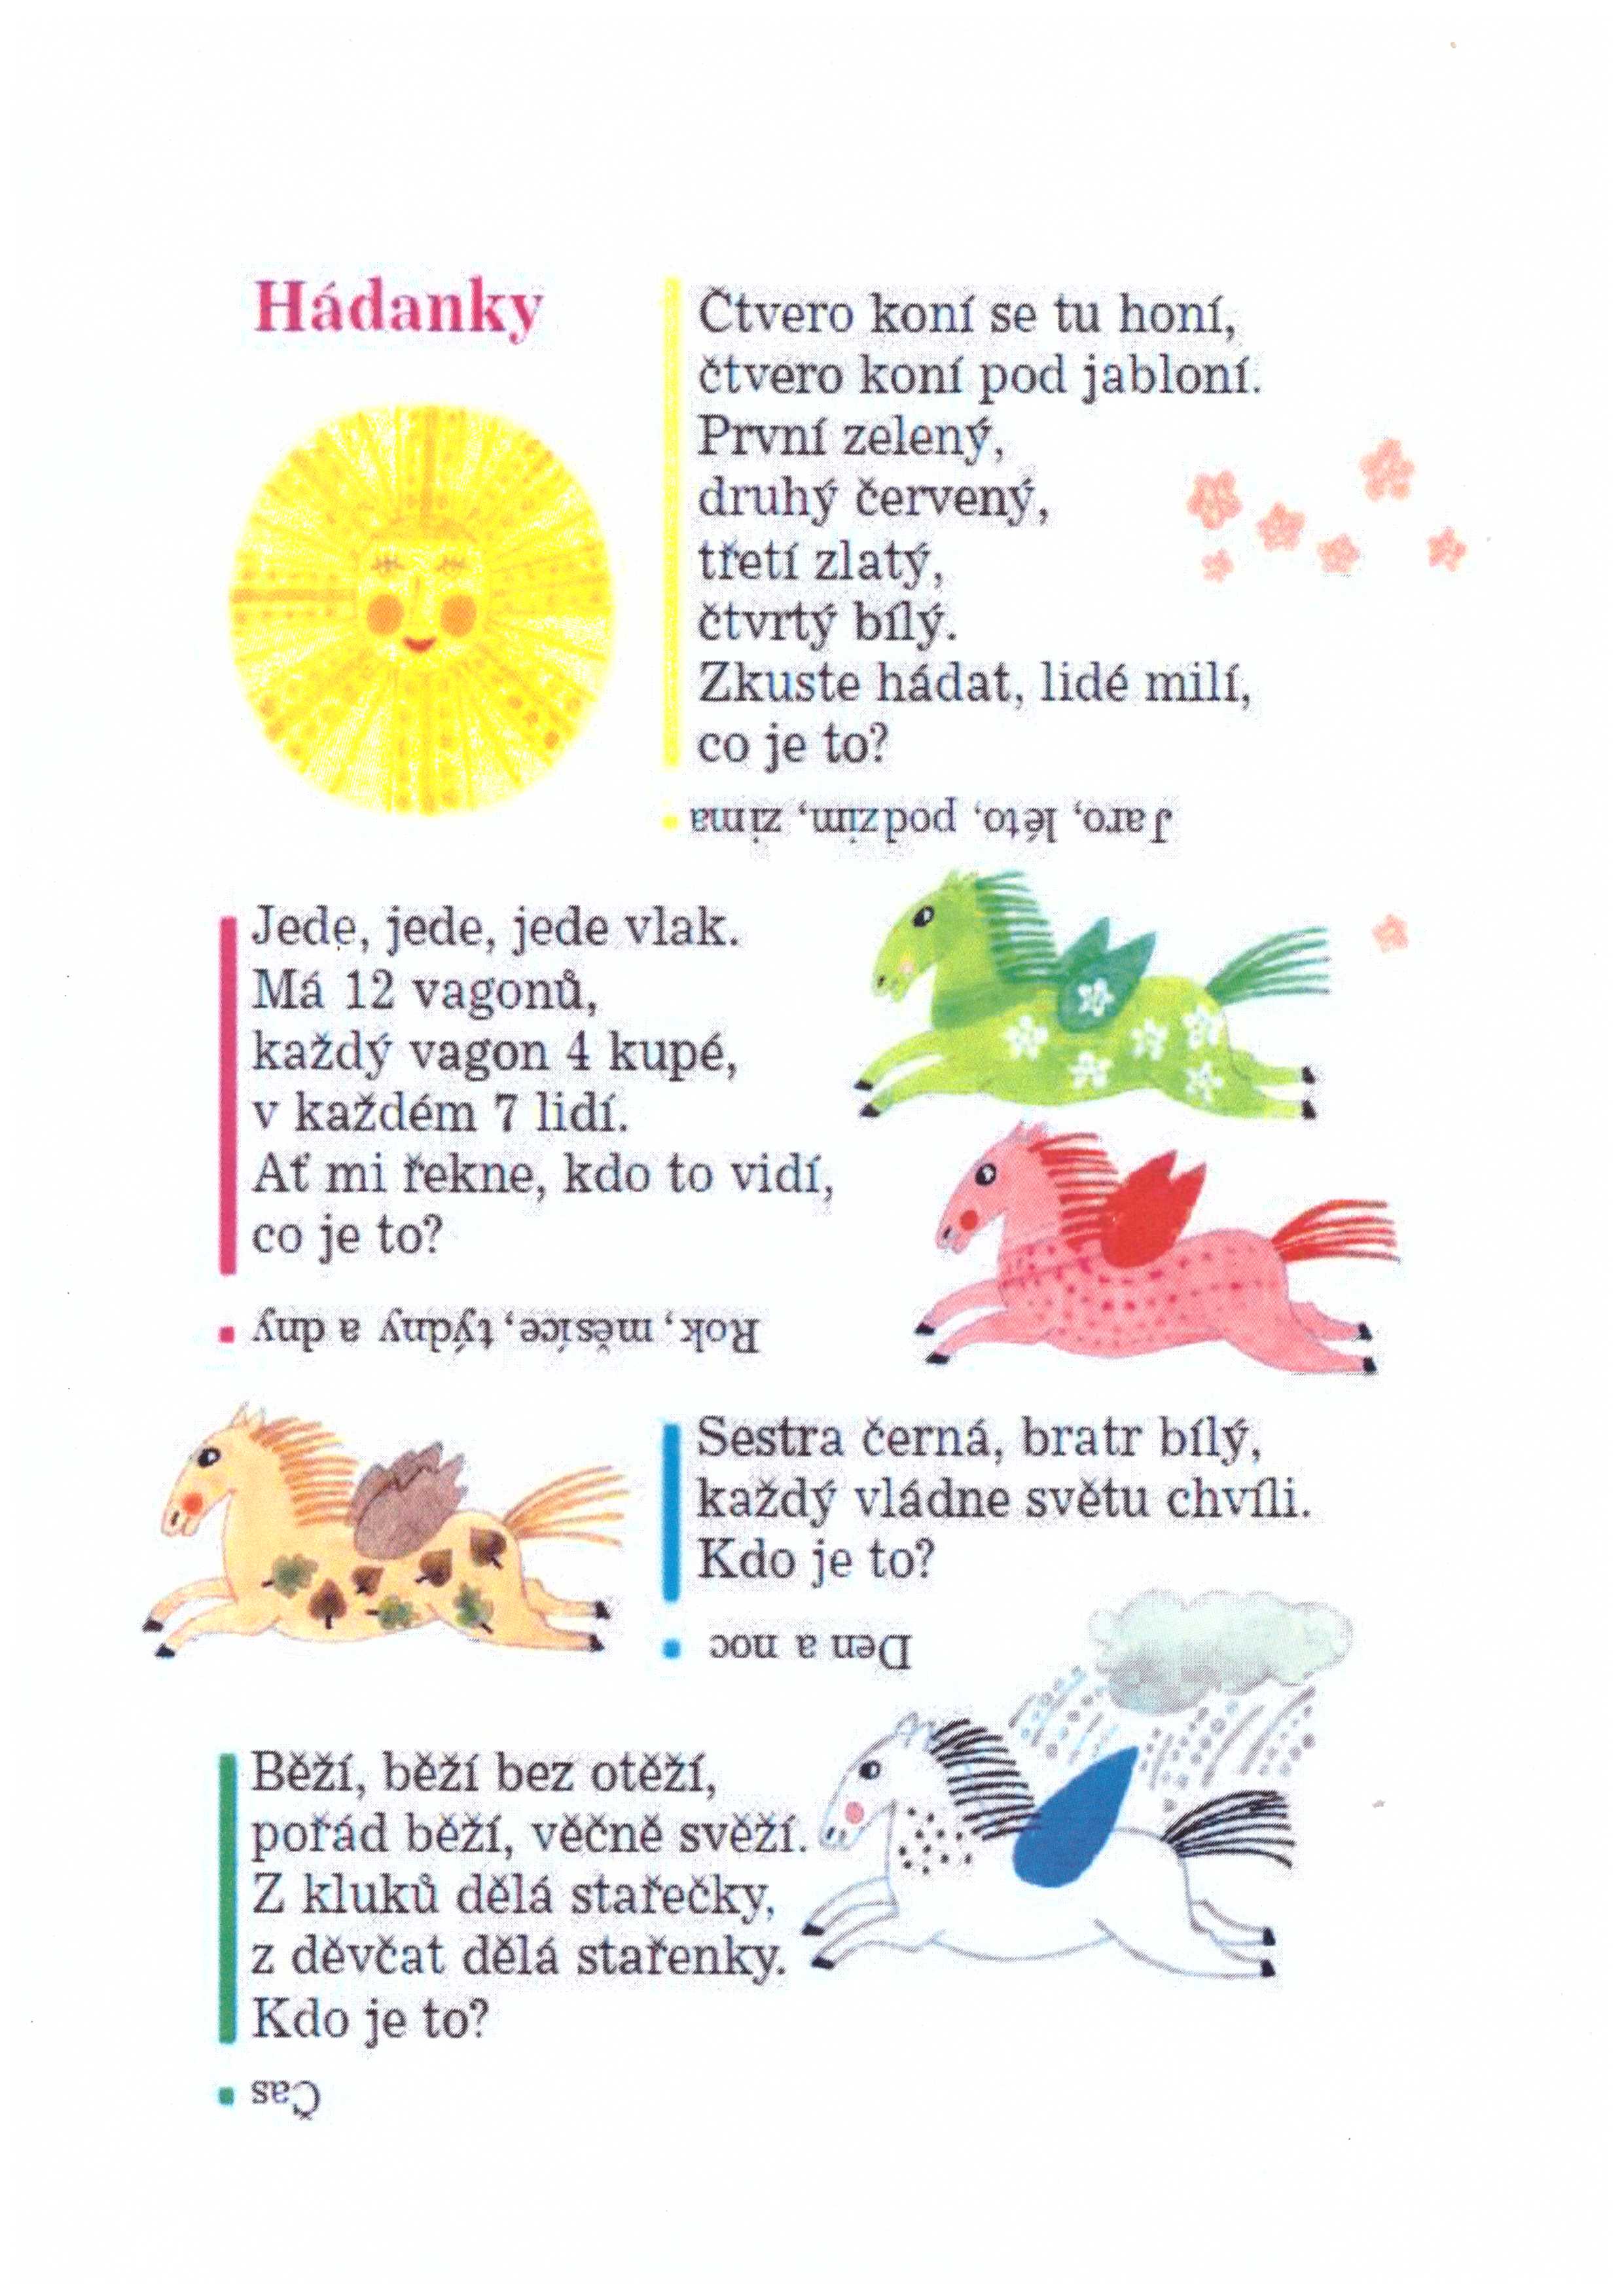 Hádanky
Čtvero koní se tu honí,
čtvero koní pod jabloní.
První zelený,
druhý červený,
třetí zlatý,
čtvrtý bílý.
Zkuste hádat, lidé milí,
co je to?
Jaro, léto, podzim, zima
Jede, jede, jede vlak.
Má 12 vagonů,
každý vagon 4 kupé,
v každém 7 lidí.
Ať mi řekne, kdo to vidí,
co je to?
Rok, měsíce, týdny a dny
Sestra černá, bratr bílý,
každý vládne světu chvíli.
Kdo je to?
Den a noc
Běží, běží bez otěží,
pořád běží, věčně svěží.
Z kluků dělá stařečky,
z děvčat dělá stařenky.
Kdo je to?
Čas